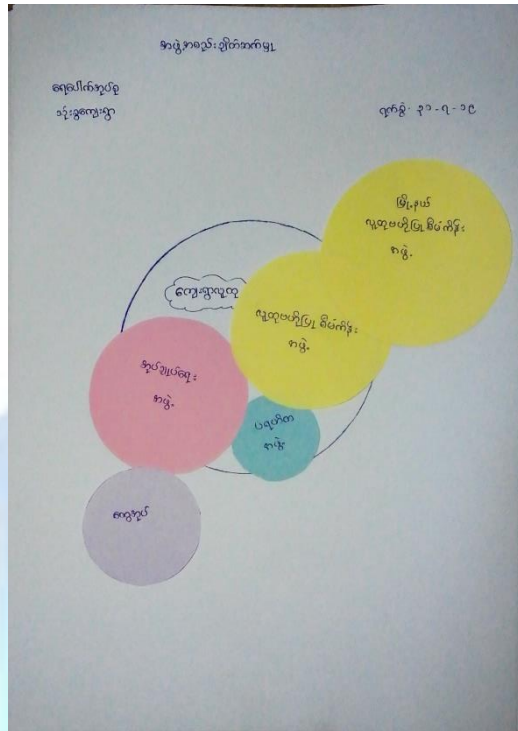 အဖွဲ့အစည်းချိတ်ဆက်မှု
ရေပေါက်အုပ်စု
ဒဉ်းခွကျေးရွာ
ရက်စွဲ- ၃၁-၇-၁၉
မြို့နယ်
လူထုဗဟိုပြုစီမံကိန်း
အဖွဲ့
ကျေးရွာလူထု
လူထုဗဟိုပြုစီမံကိန်း
အဖွဲ့
အုပ်ချုပ်ရေး
အဖွဲ့
ပရဟိတ
အဖွဲ့
ကျေးအုပ်